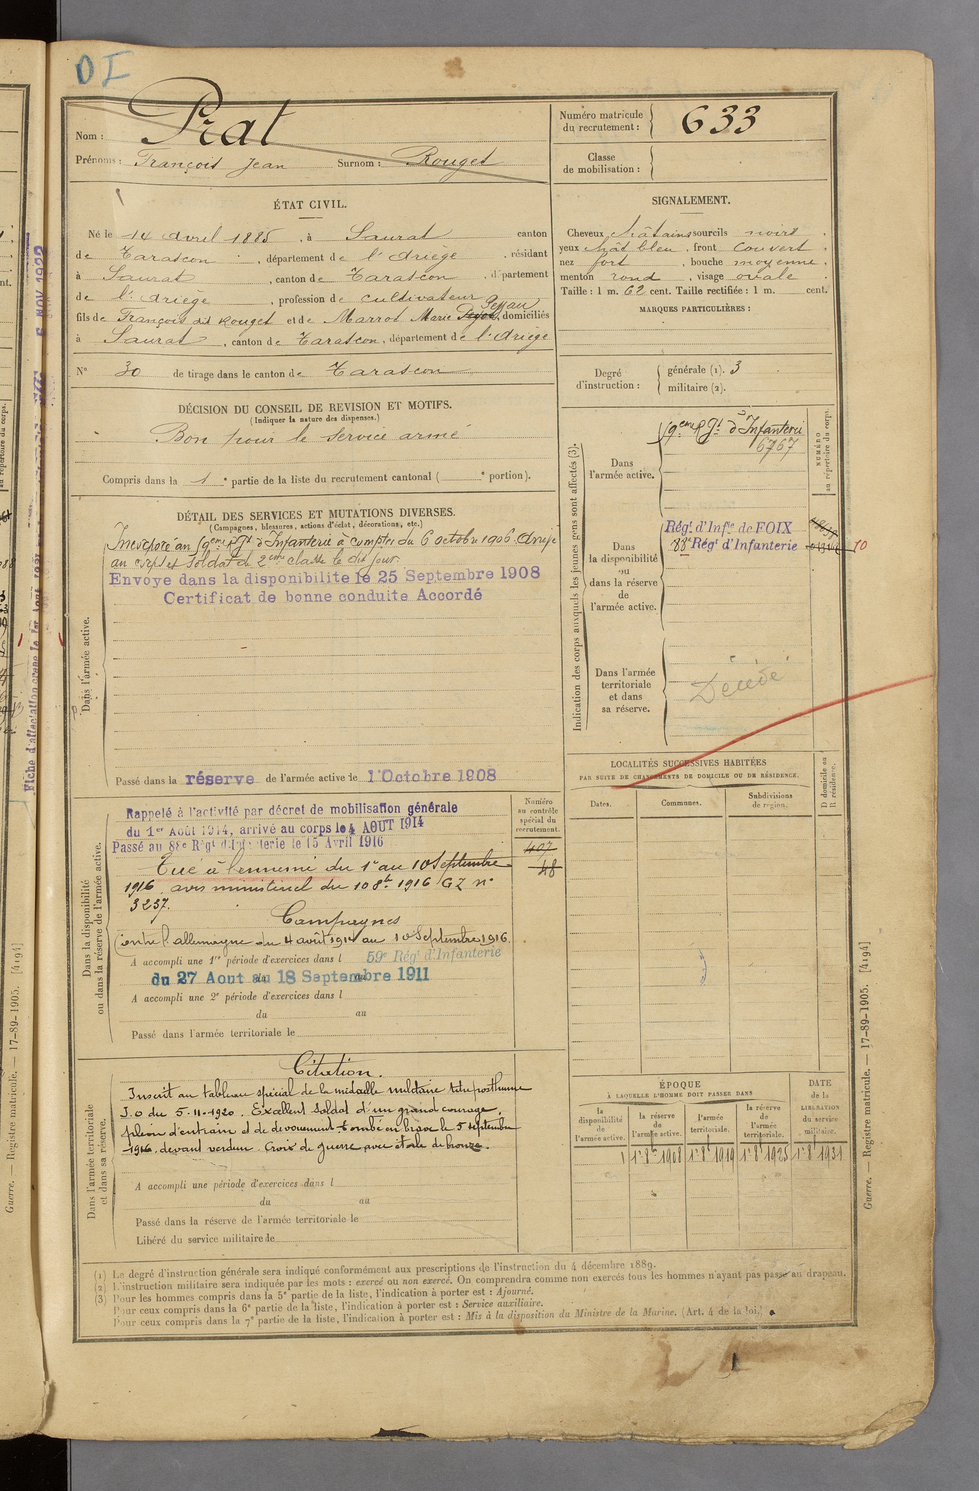 DI
Nom : Prat
Prénoms : François Jean Surnom : Rouget
Numéro matricule du recrutement : 633
Classe de mobilisation :
ÉTAT CIVIL.
Né le 14 avril 1885, à Saurat canton
de Tarascon, département de l'Ariège, résidant
à Saurat, canton de Tarascon, département
de l'Ariège, profession de cultivateur
fils de François dit Rouget et de Marrot Marie domiciliés
à Saurat, canton de Tarascon, département de l'Ariège
N° 30 de tirage dans le canton de Tarascon
SIGNALEMENT.
Cheveux châtains sourcils noirs
yeux chât bleu, front couvert
nez fort, bouche moyenne,
menton rond, visage ovale
Taille : 1 m. 62 cent. Taille rectifiée : 1 m. cent.
MARQUES PARTICULIÈRES :
Degré d'instruction : générale (1). 3
militaire (2).
DÉCISION DU CONSEIL DE REVISION ET MOTIFS.
(Indiquer la nature des dispenses.)
Bon pour le service armé
Compris dans la 1e partie de la liste du recrutement cantonal ( e portion).
DÉTAIL DES SERVICES ET MUTATIONS DIVERSES.
(Campagnes, blessures, actions d'éclat, décorations, etc.)
Incorporé au 59eme Rgt d'Infanterie à compter du 6 octobre 1906. Arrivé
au corps et soldat de 2eme classe le dit jour.
Envoye dans la disponibilite le 25 Septembre 1908
Certificat de bonne conduite Accordé
Dans l'armée active.
Passé dans la réserve de l'armée active le 1 Octobre 1908
Indication des corps auxquels les jeunes gens sont affectés (3).
NUMÉRO au répertoire du corps.
Dans l'armée active.
59eme Rgt d'Infanterie
6767
Dans la disponibilité ou dans la réserve de l'armée active.
Régt d'Infie de FOIX
88e Régt d'Infanterie
10
Dans l'armée territoriale et dans sa réserve.
Décédé
LOCALITÉS SUCCESSIVES HABITÉES
PAR SUITE DE CHANGEMENTS DE DOMICILE OU DE RÉSIDENCE.
Dates. Communes. Subdivisions de région. D domicile ou R résidence.
Dans la disponibilité ou dans la réserve de l'armée active.
Numéro au contrôle spécial du recrutement.
407
48
Rappelé à l'activité par décret de mobilisation générale
du 1er Août 1914, arrivé au corps le 4 AOUT 1914
Passé au 88e Régt d'Infanterie le 15 Avril 1916
Tué à l'ennemi du 1er au 10 Septembre
1916. avis ministériel du 10 8bre 1916 GZ n°
3237.
Campagnes
contre l'allemagne du 4 août 1914 au 10 Septembre 1916.
A accompli une 1re période d'exercices dans l 59e Rég' d'Infanterie
du 27 Aout au 18 Septembre 1911
A accompli une 2e période d'exercices dans l
du au
Passé dans l'armée territoriale le
Dans l'armée territoriale et dans sa réserve.
Citation.
Inscrit au tableau spécial de la médaille militaire titre posthume
J.O du 5.11.1920. Excellent soldat d'un grand courage,
plein d'entrain et de dévouement tombé en brave le 5 septembre
1916. devant verdun. Croix de guerre avec étoile de bronze.
A accompli une période d'exercices dans l
du au
Passé dans la réserve de l'armée territoriale le
Libéré du service militaire le
ÉPOQUE
À LAQUELLE L'HOMME DOIT PASSER DANS
DATE de la LIBÉRATION du service militaire.
la disponibilité de l'armée active. la réserve de l'armée active. l'armée territoriale. la réserve de l'armée territoriale.
1er 8bre 1908 1er 8bre 1919 1er 8bre 1925 1er 8bre 1931
(1) Le degré d'instruction générale sera indiqué conformément aux prescriptions de l'instruction du 4 décembre 1889.
(2) L'instruction militaire sera indiquée par les mots : exercé ou non exercé. On comprendra comme non exercés tous les hommes n'ayant pas passé au drapeau.
(3) Pour les hommes compris dans la 5e partie de la liste, l'indication à porter est : Ajourné.
Pour ceux compris dans la 6e partie de la liste, l'indication à porter est : Service auxiliaire.
Pour ceux compris dans la 7e partie de la liste, l'indication à porter est : Mis à la disposition du Ministre de la Marine. (Art. 4 de la loi.)
Guerre. — Registre matricule. — 17-89-1905. [4194]
Guerre. — Registre matricule. — 17-89-1905. [4194]